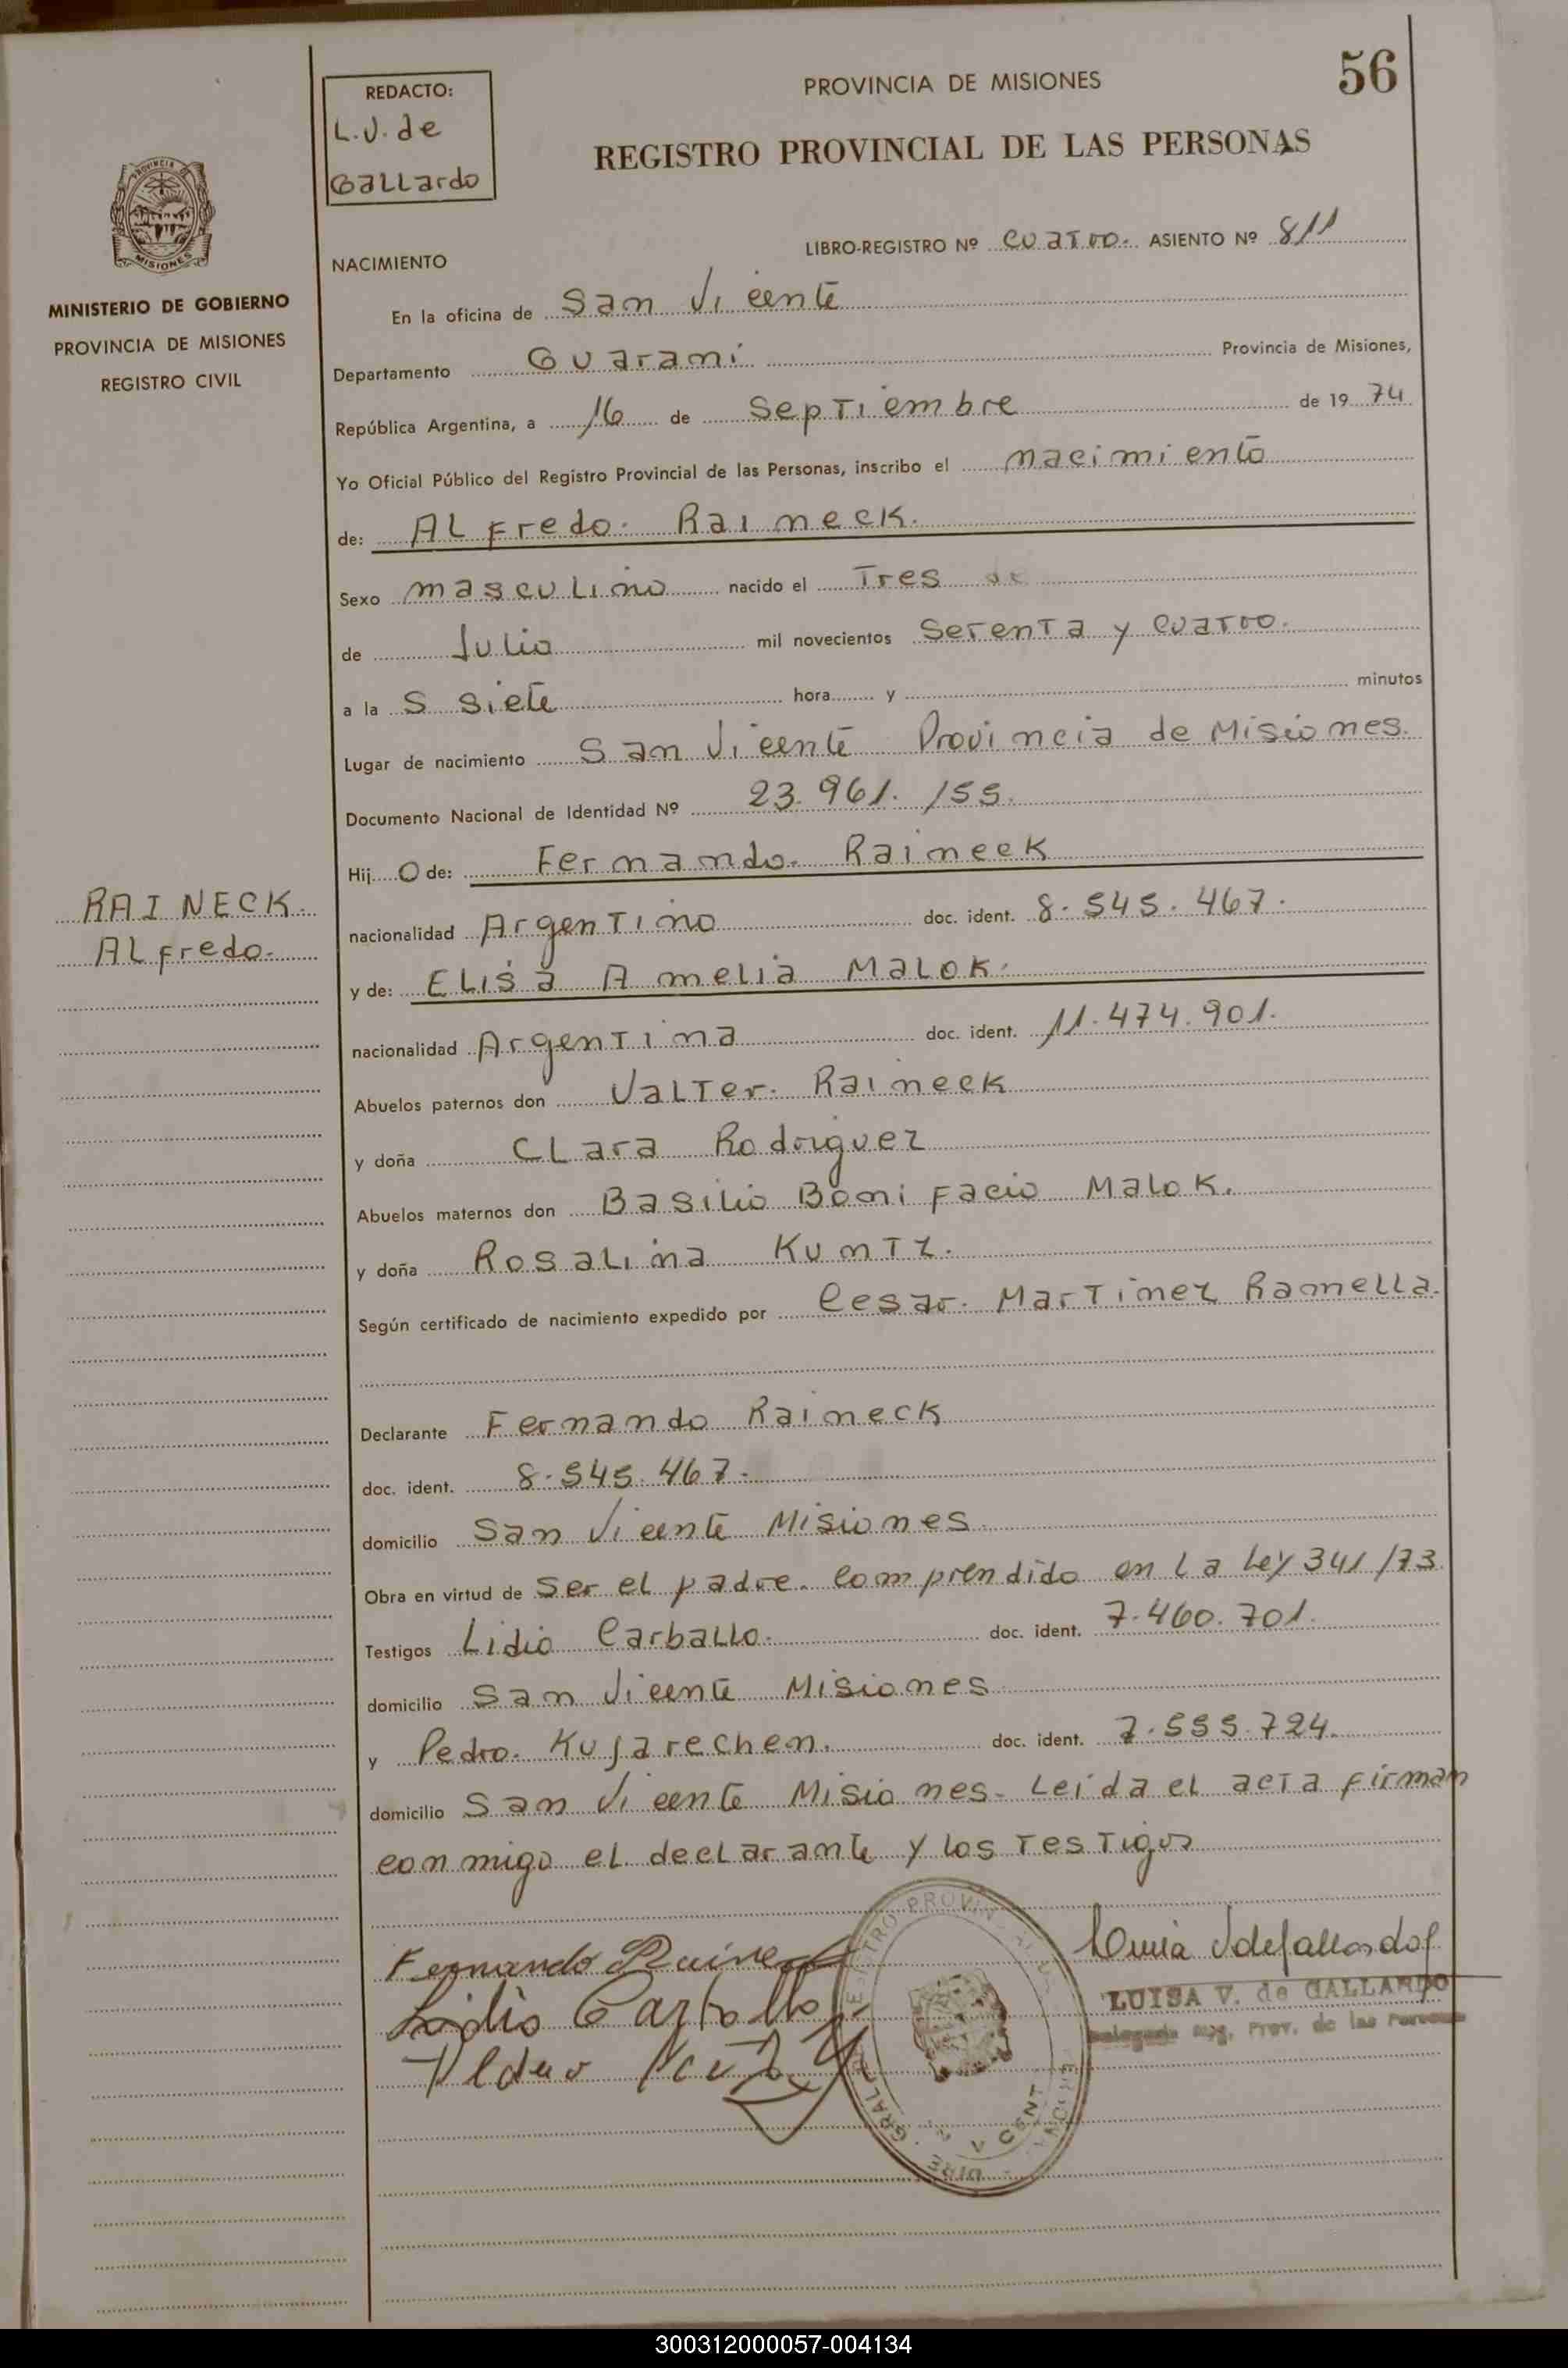 56
REDACTO:
L.V. de
Gallardo
PROVINCIA DE MISIONES
REGISTRO PROVINCIAL DE LAS PERSONAS
PROVINCIA
MISIONES
MINISTERIO DE GOBIERNO
PROVINCIA DE MISIONES
REGISTRO CIVIL
LIBRO-REGISTRO Nº cuatro. ASIENTO Nº 811
NACIMIENTO
En la oficina de San Vicente
Departamento Guarani Provincia de Misiones,
República Argentina, a 16 de Septiembre de 19 74
Yo Oficial Público del Registro Provincial de las Personas, inscribo el nacimiento
de: Alfredo. Raineck.
Sexo masculino nacido el Tres de
de Julio mil novecientos Setenta y cuatro.
a la s siete hora y minutos
Lugar de nacimiento San Vicente Provincia de Misiones.
Documento Nacional de Identidad Nº 23.961.155.
Hij o de: Fernando. Raineck
RAINECK.
Alfredo.
nacionalidad Argentino doc. ident. 8.545.467.
y de: Elisa Amelia Malok.
nacionalidad Argentina doc. ident. 11.474.901.
Abuelos paternos don Valter. Raineck
y doña Clara Rodriguez
Abuelos maternos don Basilio Bonifacio Malok.
y doña Rosalina Kuntz.
Según certificado de nacimiento expedido por Cesar. Martinez Ramella.
Declarante Fernando Raineck
doc. ident. 8.545.467.
domicilio San Vicente Misiones
Obra en virtud de ser el padre. comprendido en la Ley 341/73
Testigos Lidio Carballo. doc. ident. 7.460.701.
domicilio San Vicente Misiones
y Pedro. Kujarechen. doc. ident. 7.555.724.
domicilio San Vicente Misiones. Leída el acta firman
conmigo el declarante y los testigos
Fernando Raineck
Lidio Carballo
LUISA V. de GALLARDO
Delegada Reg. Prov. de las Personas
300312000057-004134